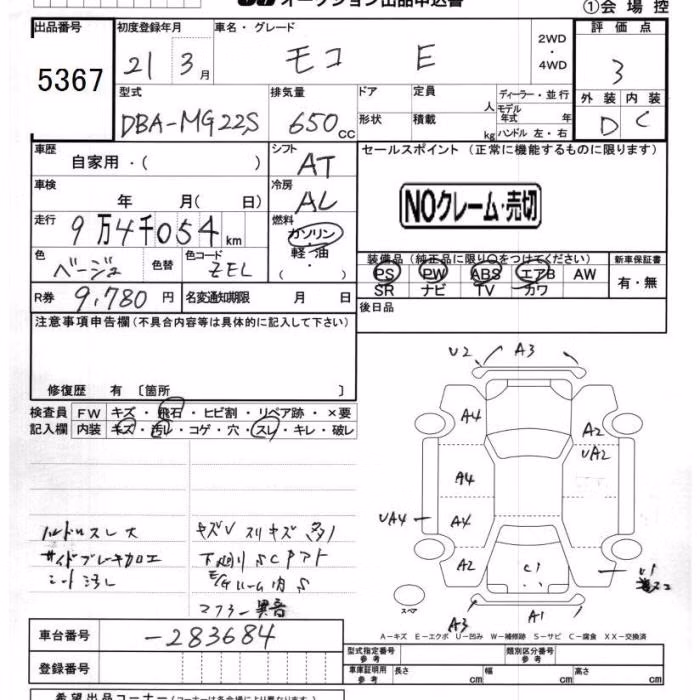 オークション出品申込書
①会場控
出品番号
5367
初度登録年月
21 3月
車名・グレード
モコ E
2WD
・
4WD
評価点
3
外装 内装
D C
型式
DBA-MG22S
排気量
650cc
ドア
形状
定員 人
積載 kg
ディーラー・並行
モデル年式 年
ハンドル 左・右
車歴
自家用・( )
シフト
AT
セールスポイント (正常に機能するものに限ります)
NOクレーム・売切
車検
年 月( 日)
冷房
AL
走行
9万4千054km
燃料
ガソリン
・
軽油
・
( )
色
ベージュ
色替
色コード
ZEL
装備品 (純正品に限り○をつけてください)
PS PW ABS エアB AW
SR ナビ TV カワ
新車保証書
有・無
R券 9,780円
名変通知期限 月 日
後日品
注意事項申告欄(不具合内容等は具体的に記入して下さい)
修復歴 有 〔箇所 〕
検査員
記入欄
FW キズ・飛石・ヒビ割・リペア跡・×要
内装 キズ・汚レ・コゲ・穴・スレ・キレ・破レ
ハンドルスレ大
サイドブレーキカロエ
シート汚レ
キズV スリキズ多ノ
下廻リSCPアト
E/Gルーム内S
マフラー異音
U2 A3
A4 A2
UA2
A4
UA4 A4
A2 C1
U1
スペア
A3 A1
A―キズ E―エクボ U―凹み W―補修跡 S―サビ C―腐食 XX―交換済
車台番号
-283684
登録番号
型式指定番号
参考
類別区分番号
参考
車庫証明用
参考
長さ cm 幅 cm 高さ cm
希望出品コーナー(コーナーは各会場により異なります)